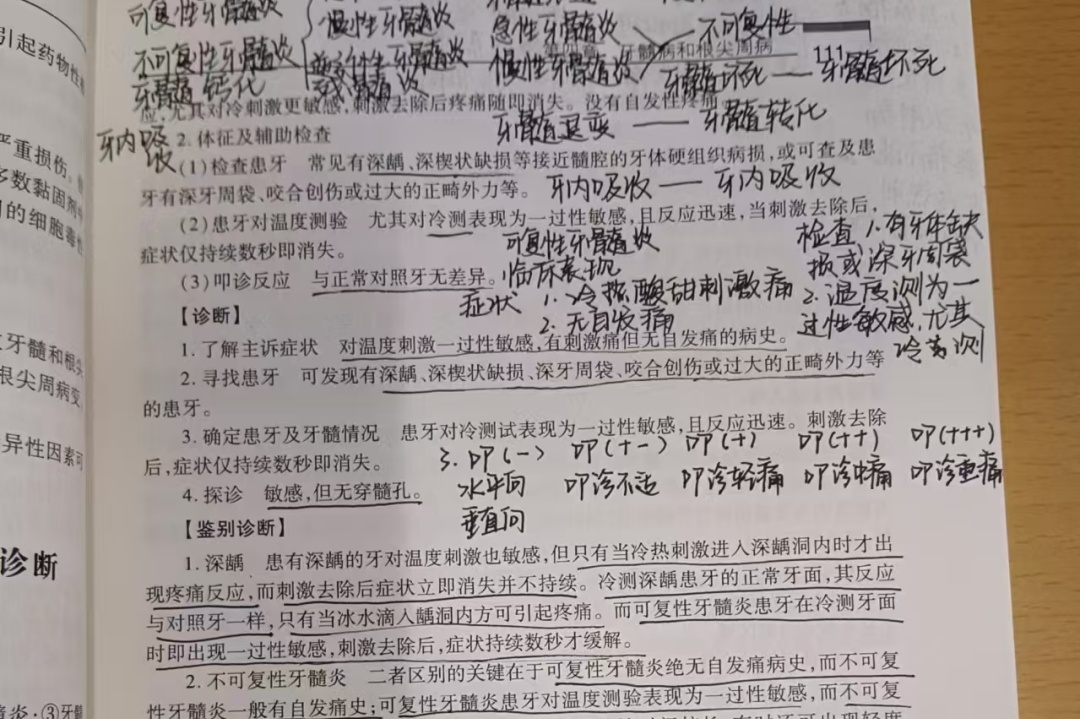 可复性牙髓炎
慢性牙髓炎
急性牙髓炎
不可复性
引起药物性
不可复性牙髓炎
慢性牙髓炎
牙髓坏死——牙髓坏死
第四章 牙髓病和根尖周病
111
牙髓钙化
应，尤其对冷刺激更敏感，刺激去除后疼痛随即消失。没有自发性疼痛。
牙髓退变——牙髓转化
牙内吸收
2. 体征及辅助检查
严重损伤。
(1) 检查患牙 常见有深龋、深楔状缺损等接近髓腔的牙体硬组织病损，或可查及患
多数黏固剂
牙有深牙周袋、咬合创伤或过大的正畸外力等。
牙内吸收——牙内吸收
的细胞毒性
(2) 患牙对温度测验 尤其对冷测表现为一过性敏感，且反应迅速，当刺激去除后，
症状仅持续数秒即消失。
可复性牙髓炎
检查 1.有牙体缺
损或深牙周袋
(3) 叩诊反应 与正常对照牙无差异。
临床表现
症状 1.冷热酸甜刺激痛
2.温度测为一
【诊断】
2.无自发痛
过性敏感，尤其
冷测
牙髓和根尖
1. 了解主诉症状 对温度刺激一过性敏感，有刺激痛但无自发痛的病史。
根尖周病变
2. 寻找患牙 可发现有深龋、深楔状缺损、深牙周袋、咬合创伤或过大的正畸外力等
的患牙。
异性因素可
3. 确定患牙及牙髓情况 患牙对冷测试表现为一过性敏感，且反应迅速。刺激去除
后，症状仅持续数秒即消失。
3.叩(-) 叩(+-) 叩(+) 叩(++) 叩(+++)
4. 探诊 敏感，但无穿髓孔。
水平向 叩诊不适 叩诊轻痛 叩诊中痛 叩诊重痛
垂直向
【鉴别诊断】
诊断
1. 深龋 患有深龋的牙对温度刺激也敏感，但只有当冷热刺激进入深龋洞内时才出
现疼痛反应，而刺激去除后症状立即消失并不持续。冷测深龋患牙的正常牙面，其反应
与对照牙一样，只有当冰水滴入龋洞内方可引起疼痛。而可复性牙髓炎患牙在冷测牙面
时即出现一过性敏感，刺激去除后，症状持续数秒才缓解。
2. 不可复性牙髓炎 二者区别的关键在于可复性牙髓炎绝无自发痛病史，而不可复
性牙髓炎一般有自发痛史；可复性牙髓炎患牙对温度测验表现为一过性敏感，而不可复
炎·③牙髓